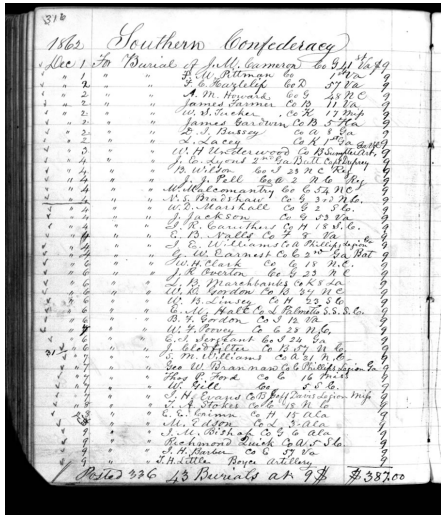 316
1862 Southern Confederacy
Dec 1 For Burial of J. M. Cameron Co G 41st Va $ 9
" 1 " " P. W. Pittman Co 1st Va 9
" 2 " " F. C. Hazlip Co D 57 Va 9
" 2 " " A. M. Howard Co G 48 N C 9
" 2 " " James Farmer Co B 11 Va 9
" 2 " " W. S. Tucker Co K 17 Miss 9
" 2 " " James Gardwin Co B 5 Fla 9
" 2 " " D. J. Bussey Co A 8 Ga 9
" 2 " " L. Lacey Co K 1st Ga 9
" 3 " " W H Underwood Co B Sumpter Art. 9
" 4 " " J. C. Lyons 2nd Ga Batt 9
" 4 " " B. Wilson Co I 23 N C Reg 9
" 4 " " J. J. Pell Co 2 N C Reg 9
" 4 " " W. Malcomantry Co C 54 N C 9
" 4 " " N. S. Bradshaw Co G 3rd N C. 9
" 4 " " W. D. Marshall Co G 2 S C. 9
" 4 " " J. Jackson Co G 53 Va 9
" 4 " " J. R. Caruthers Co H 18 S. C. 9
" 4 " " E. B. Nalls Co F 8 Va 9
" 4 " " J. E. Williams Co A Phillips Legion Ga 9
" 4 " " G. W. Earnest Co C 2nd Ga Bat 9
" 6 " " W. H. Clark Co G 18 N. C. 9
" 6 " " J. R. Overton Co G 23 N C 9
" 6 " " L. B. Marchbanks Co K 8 La. 9
" 6 " " W. D. Gordon Co B 37 N C 9
" 6 " " W. B. Linsey Co H 23 S C 9
" 6 " " C. M. Hall Co L Palmetto S. S. S. C. 9
" 6 " " B. F. Gordon Co I 12 Va 9
" 7 " " W. F. Povey Co G 28 N C. 9
" 6 " " C. J. Sergeant Co I 24 Ga 9
" 6 " " J. Clodfilter Co B 57 N C. 9
31 " 7 " " S. M. Williams Co A 21 N. C. 9
" 7 " " Geo W. Brannan Co C Phillips Legion Ga 9
" 7 " " Thos P. Ford Co C 16 Miss 9
" 7 " " W. Gill Co 5 S. C. 9
" 7 " " J. H. Evans Co B Jeff Davis Legion Miss 9
" 7 " " T. A. Stokes Co G 18 N C 9
" 8 " " E. E. Crimn Co H 15 Ala 9
" " " M. Edson Co L 3 Ala 9
" 9 " " J. M. Bishop Co G 6 Ala 9
" 9 " " Richmond Quick Co A 5 S C. 9
" 9 " " J. H. Barber Co C 57 Va 9
" 9 " " T. H. Little Boyce Artillery 9
Posted 336 43 Burials at 9 $ $ 387.00